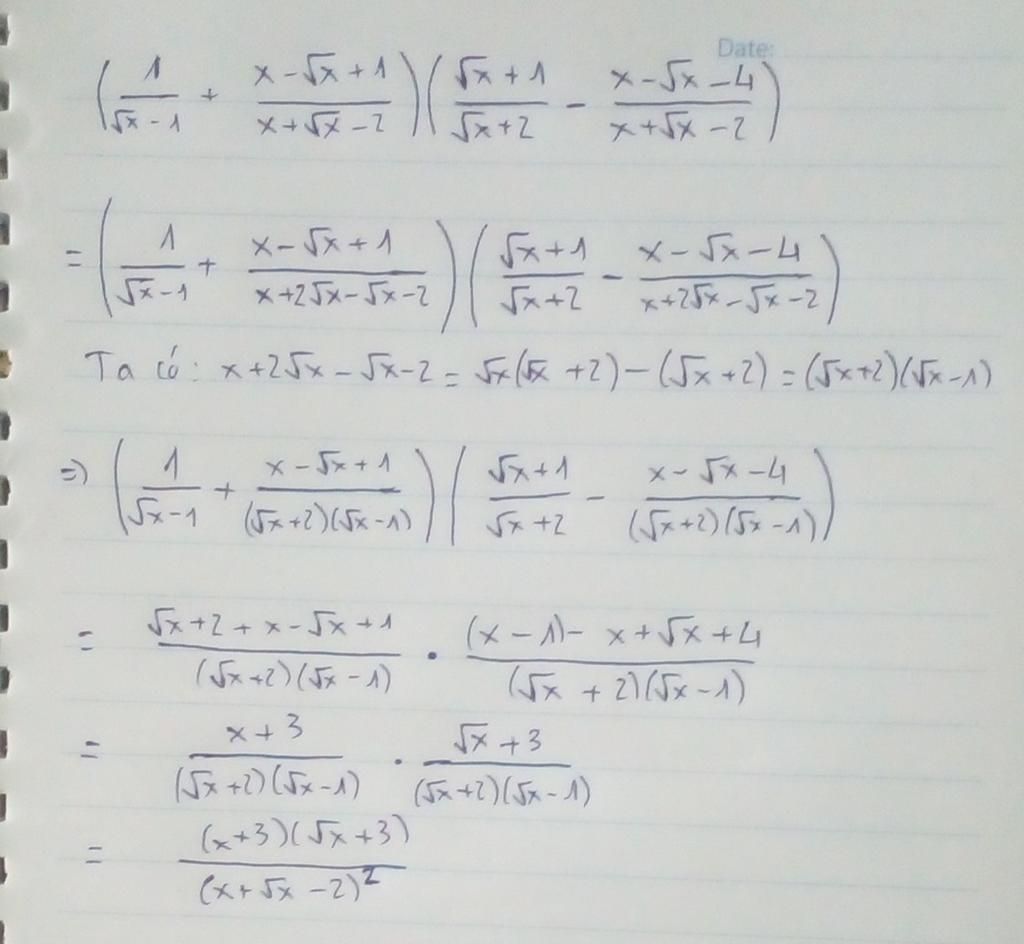 Date:
(1/(√x - 1) + (x - √x + 1)/(x + √x - 2))((√x + 1)/(√x + 2) - (x - √x - 4)/(x + √x - 2))
= (1/(√x - 1) + (x - √x + 1)/(x + 2√x - √x - 2))((√x + 1)/(√x + 2) - (x - √x - 4)/(x + 2√x - √x - 2))
Ta có: x + 2√x - √x - 2 = √x(√x + 2) - (√x + 2) = (√x + 2)(√x - 1)
=> (1/(√x - 1) + (x - √x + 1)/((√x + 2)(√x - 1)))((√x + 1)/(√x + 2) - (x - √x - 4)/((√x + 2)(√x - 1)))
= (√x + 2 + x - √x + 1)/((√x + 2)(√x - 1)) . ((x - 1) - x + √x + 4)/((√x + 2)(√x - 1))
= (x + 3)/((√x + 2)(√x - 1)) . (√x + 3)/((√x + 2)(√x - 1))
= ((x + 3)(√x + 3))/(x + √x - 2)²